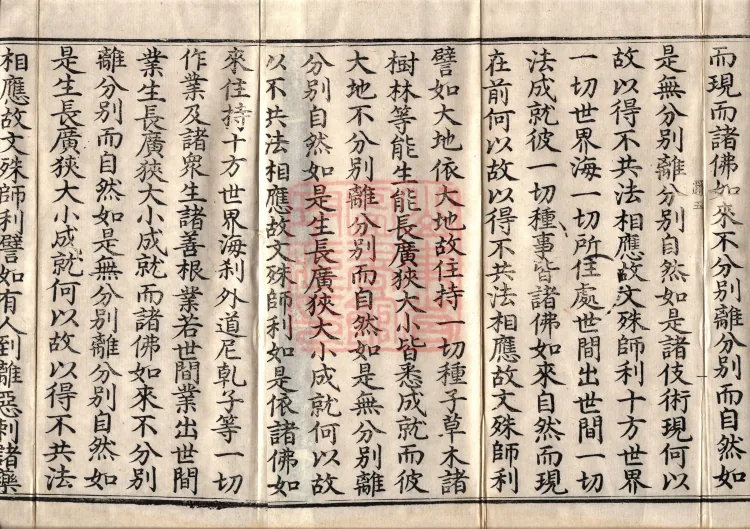 而現而諸佛如來不分別離分別自然如
是無分別離分別自然如是諸伎術現何以
故以得不共法相應故文殊師利十方世界
一切世界海一切所住處世間出世間一切
法成就彼一切種事皆諸佛如來自然而現
在前何以故以得不共法相應故文殊師利
譬如大地依大地故住持一切種子草木諸
樹林等能生能長廣狹大小皆悉成就而彼
大地不分別離分別而自然如是無分別離
分別自然如是生長廣狹大小成就何以故
以不共法相應故文殊師利如是依諸佛如
來住持十方世界海刹外道尼乹子等一切
作業及諸衆生諸善根業若世間業出世間
業生長廣狹大小成就而諸佛如來不分別
離分別而自然如是無分別離分別自然如
是生長廣狹大小成就何以故以得不共法
相應故文殊師利譬如有人到離惡刺諸藥